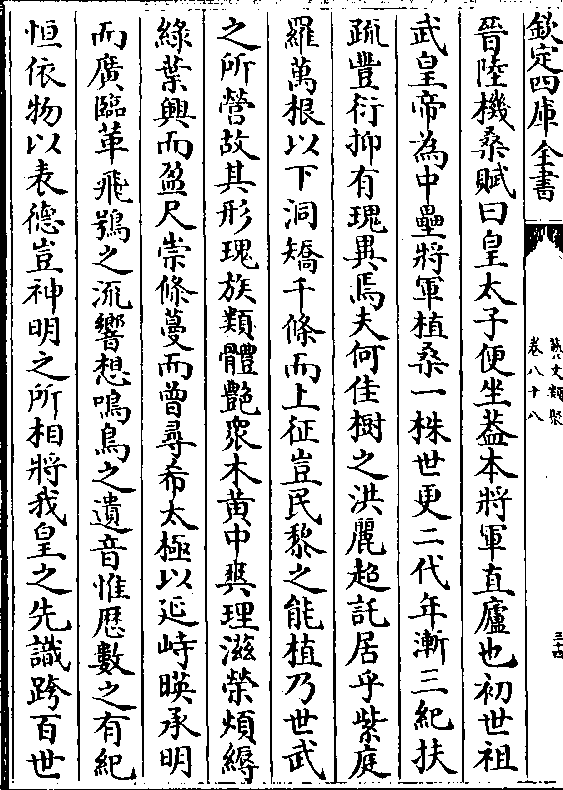 欽定四庫全書
藝文類聚
卷八十八
三十四
晉陸機桑賦曰皇太子便坐葢本將軍直廬也初世祖
武皇帝為中壘將軍植桑一株世更二代年漸三紀扶
疏豐衍抑有瑰異焉夫何佳樹之洪麗超託居乎紫庭
羅萬根以下洞矯千條而上征豈民黎之能植乃世武
之所營故其形瑰族類體艶衆木黄中爽理滋榮煩縟
綠葉興而盈尺崇條蔓而曾尋希太極以延峙暎承明
而廣臨革飛鴞之流響想鳴鳥之遺音惟厯數之有紀
恒依物以表德豈神明之所相將我皇之先識跨百世